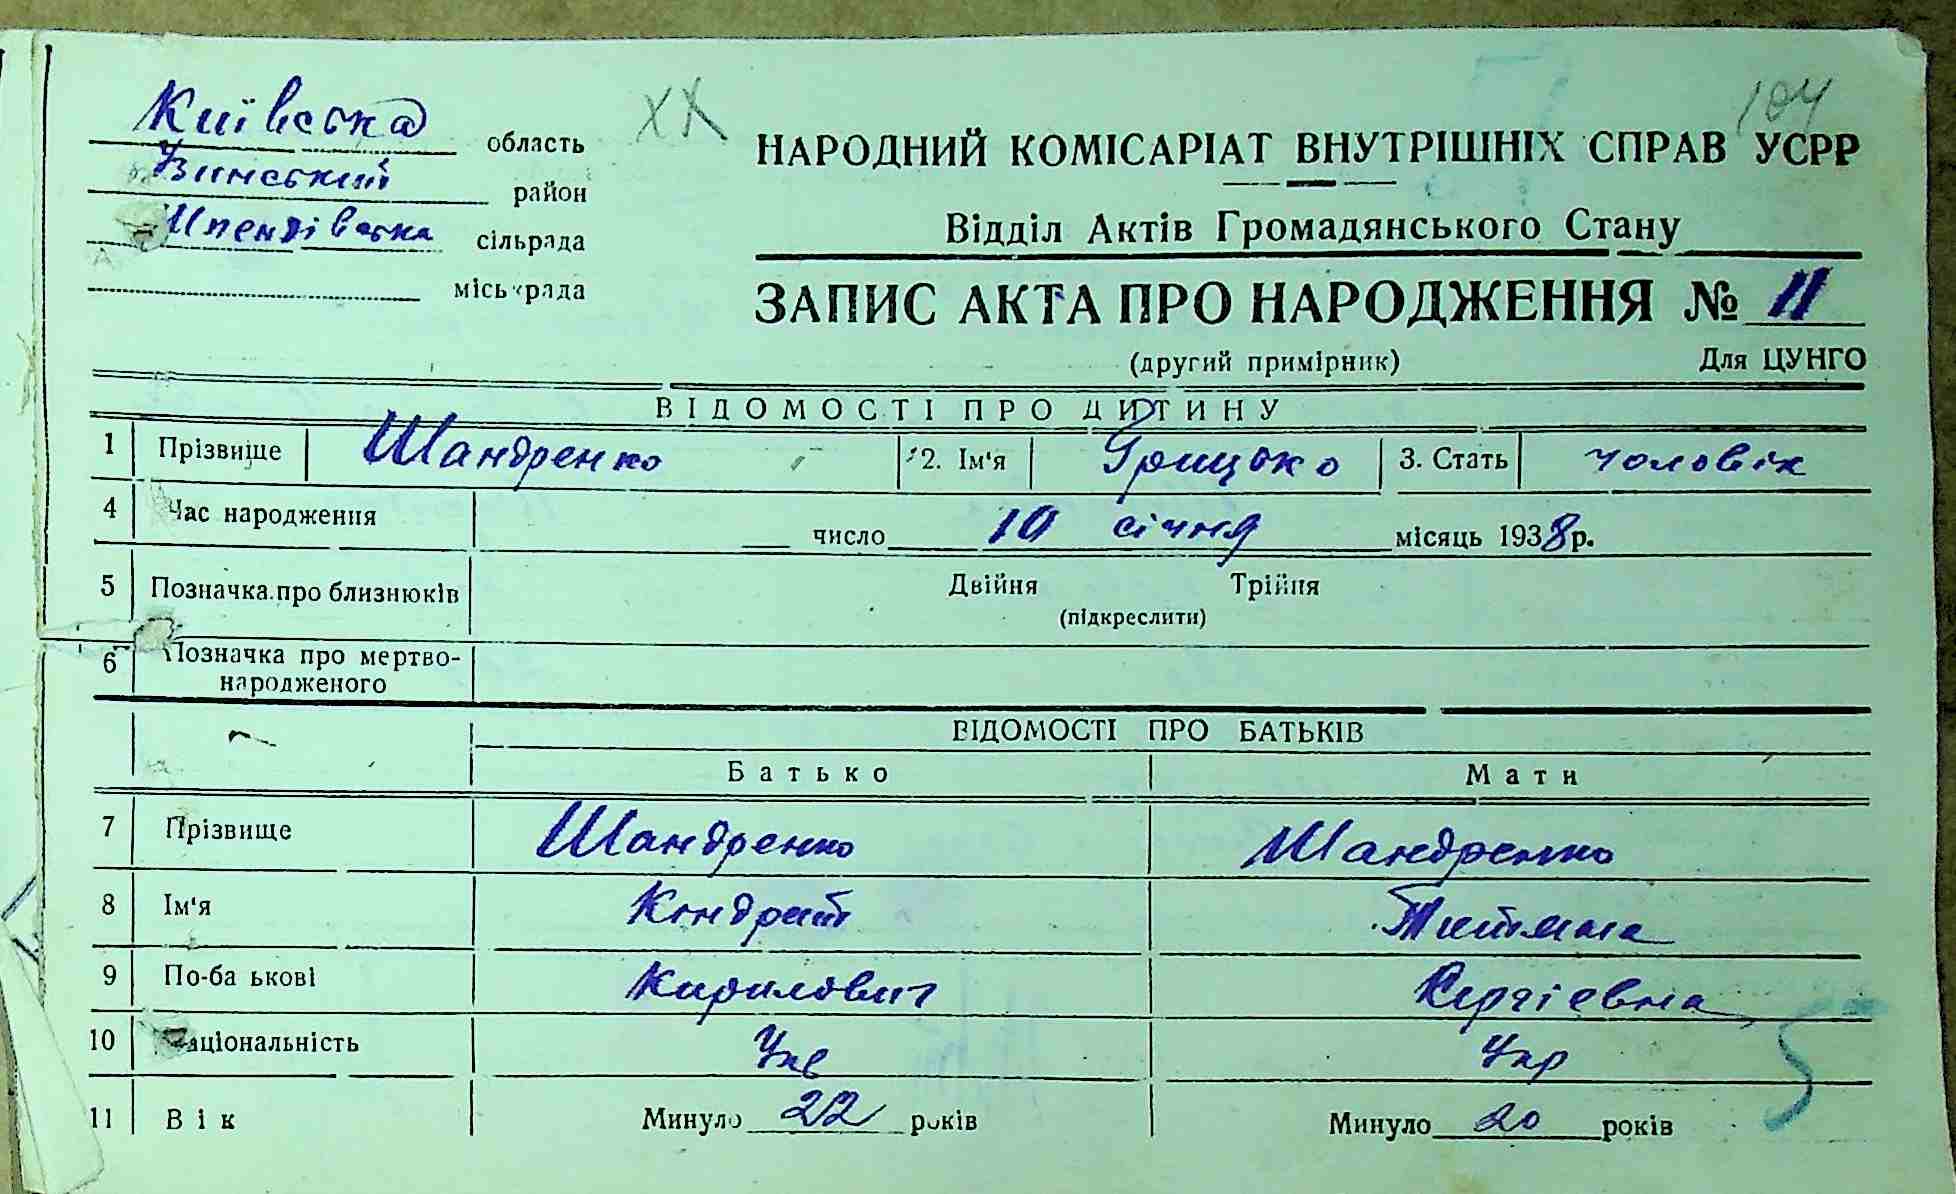 Київська область
Узинський район
Шпендівська сільрада
міськрада
ХХ
104
НАРОДНИЙ КОМІСАРІАТ ВНУТРІШНІХ СПРАВ УСРР
Відділ Актів Громадянського Стану
ЗАПИС АКТА ПРО НАРОДЖЕННЯ № 11
(другий примірник) Для ЦУНГО
ВІДОМОСТІ ПРО ДИТИНУ
1 Прізвище Шандренко 2. Ім'я Грицько 3. Стать чоловік
4 Час народження число 10 січня місяць 1938 р.
5 Позначка про близнюків Двійня Трійня
(підкреслити)
6 Позначка про мертво-
народженого
ВІДОМОСТІ ПРО БАТЬКІВ
Батько Мати
7 Прізвище Шандренко Шандренко
8 Ім'я Кндрат Титяна
9 По-ба ькові Кирилович Сергіевна
10 Національність Укр Укр
11 Вік Минуло 22 років Минуло 20 років
5